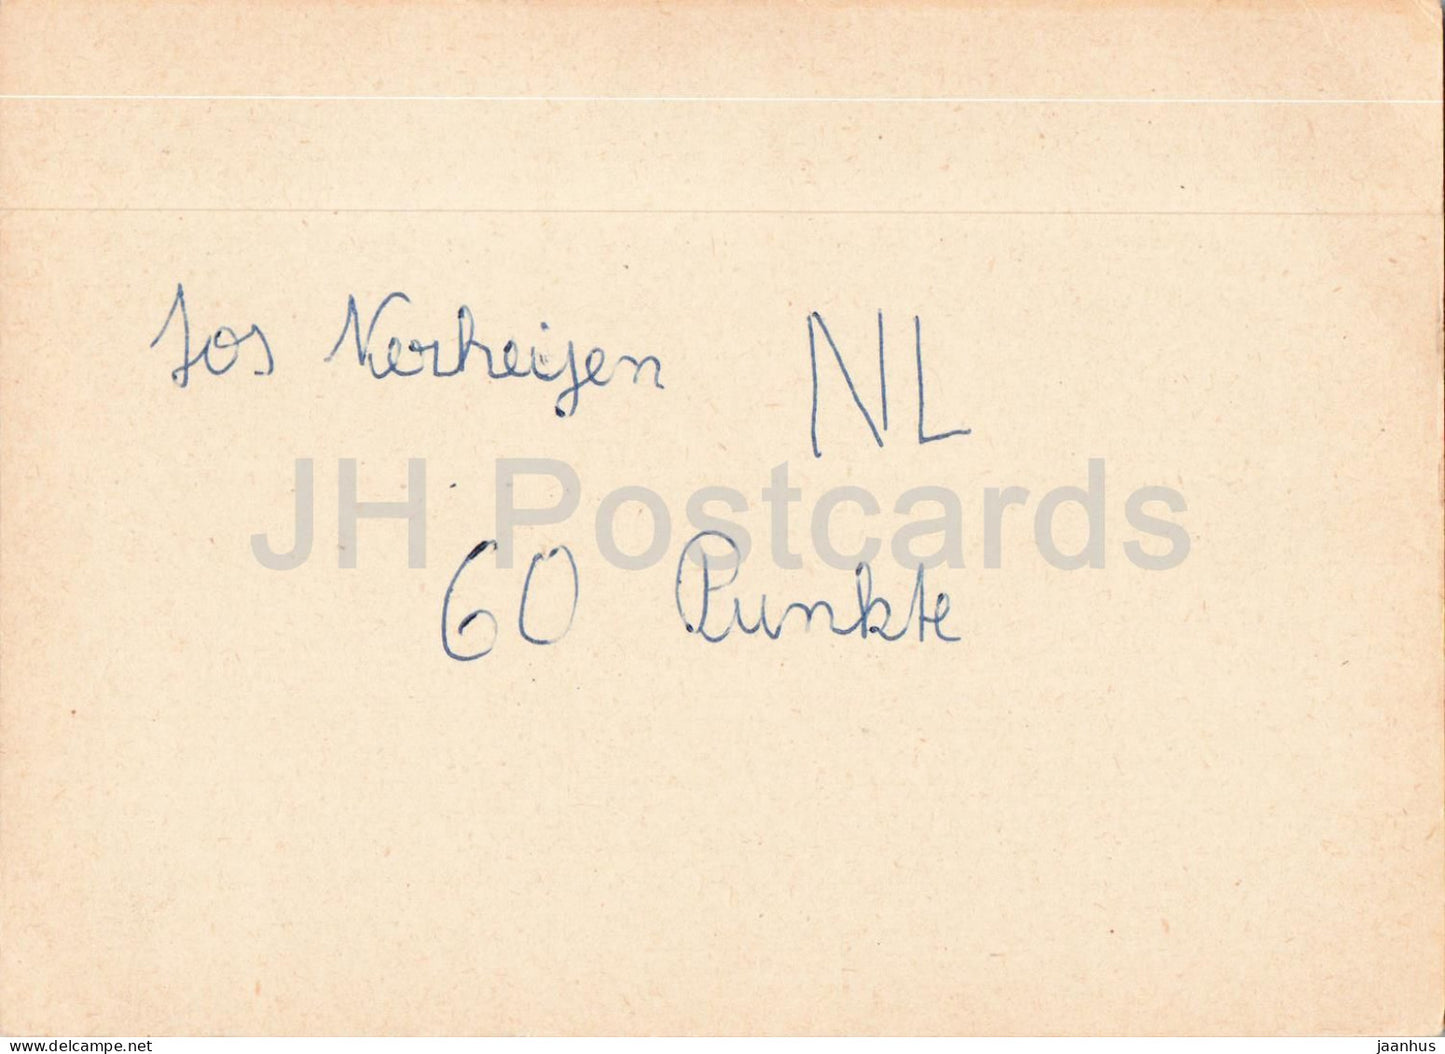 Jos Verheijen NL
JH Postcards
60 Punkte
www.delcampe.net
jaanhus